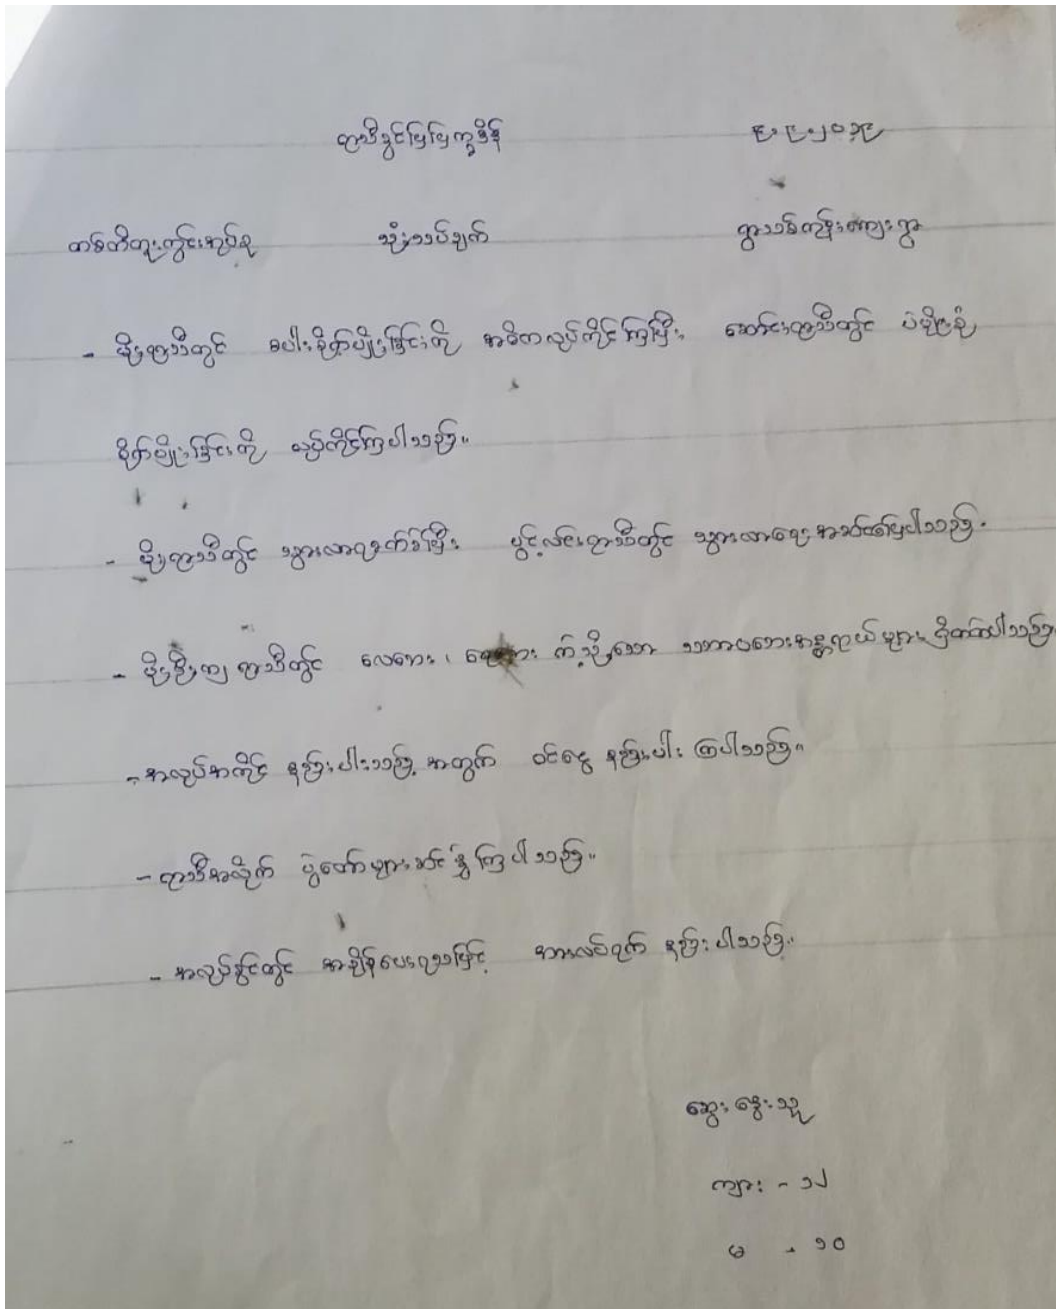 ရာသီခွင်ပြပြက္ခဒိန် ၉.၉.၂၀၁၉
သုံးသပ်ချက် ရွာသစ်ကုန်းကျေးရွာ
- မိုးရာသီတွင် စပါးစိုက်ပျိုးခြင်းကို အဓိကလုပ်ကိုင်ကြပြီး၊ ဆောင်းရာသီတွင် ပဲမျိုးစုံ
စိုက်ပျိုးခြင်းကို လုပ်ကိုင်ကြပါသည်။
- မိုးရာသီတွင် သွားလာရခက်ခဲပြီး ပွင့်လင်းရာသီတွင် သွားလာရေးအဆင်ပြေပါသည်။
- မိုးဦးကျ ရာသီတွင် လေဘေး၊ ကဲ့သို့သော သဘာဝဘေးအန္တရာယ်များ ပါသည်။
- အလုပ်အကိုင် နည်းပါးသည့် အတွက် ဝင်ငွေ နည်းပါး ကြပါသည်။
- ရာသီအလိုက် ပွဲတော်များဆင်နွှဲကြပါသည်။
- အလုပ်ခွင်တွင် အချိန်ပေးရသဖြင့် အားလပ်ရက် နည်းပါသည်။
ဆွေးနွေးသူ
ကျား - ၁၂
မ - ၁၀